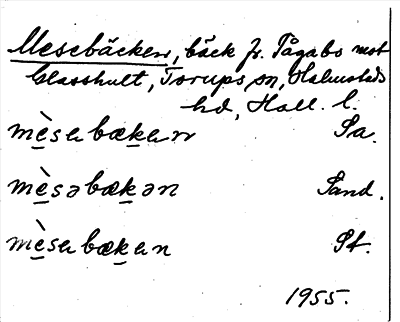 Mesebäcken, bäck fr. Tågabo mot
Classhult, Torups sn, Halmstads
hd, Hall. l.
mèsabækan Sa.
mèsəbækən Sand.
mèsabækan St.
1955.